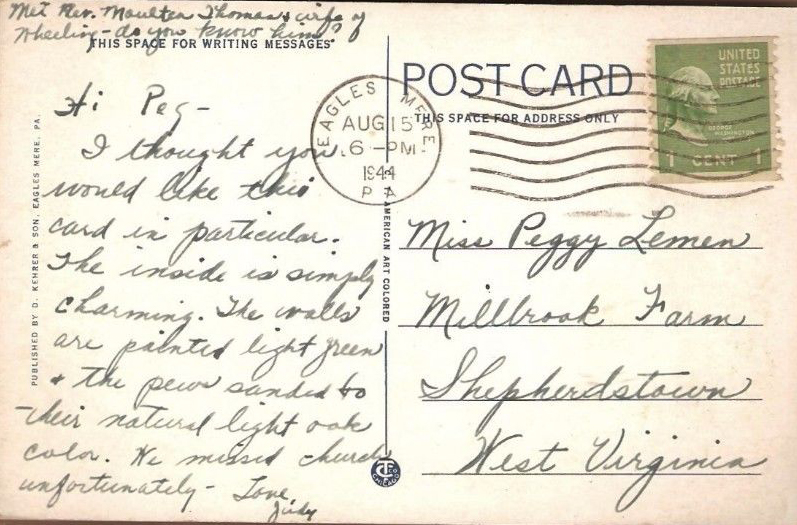 Met Rev. Moulten Thomas & wife of
Wheeling - do you know him?
THIS SPACE FOR WRITING MESSAGES
Hi Peg -
I thought you
would like this
card in particular.
The inside is simply
charming. The walls
are painted light green
& the pews sanded to
their natural light oak
color. We missed church
unfortunately - Love,
Judy
PUBLISHED BY D. KEHRER & SON, EAGLES MERE, PA.
EAGLES MERE
AUG 15
6 - PM
1944
PA
AMERICAN ART COLORED
CTCO
CHICAGO
POST CARD
THIS SPACE FOR ADDRESS ONLY
UNITED
STATES
POSTAGE
GEORGE
WASHINGTON
1 CENT 1
Miss Peggy Lemen
Millbrook Farm
Shepherdstown
West Virginia